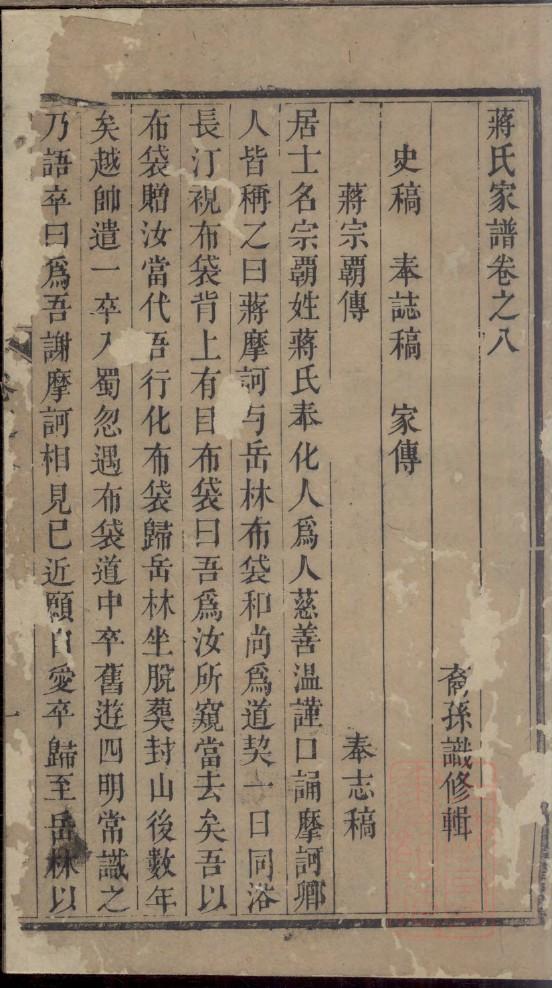 蔣氏家譜卷之八
裔孫識修輯
史稿　奉誌稿　家傳
蔣宗霸傳　奉志稿
居士名宗霸姓蔣氏奉化人爲人慈善温謹口誦摩訶鄉
人皆稱之曰蔣摩訶与岳林布袋和尚爲道契一日同浴
長汀視布袋背上有目布袋曰吾爲汝所窺當去矣吾以
布袋贈汝當代吾行化布袋歸岳林坐脫葬封山後數年
矣越帥遣一卒入蜀忽遇布袋道中卒舊遊四明常識之
乃語卒曰爲吾謝摩訶相見已近願自愛卒歸至岳林以